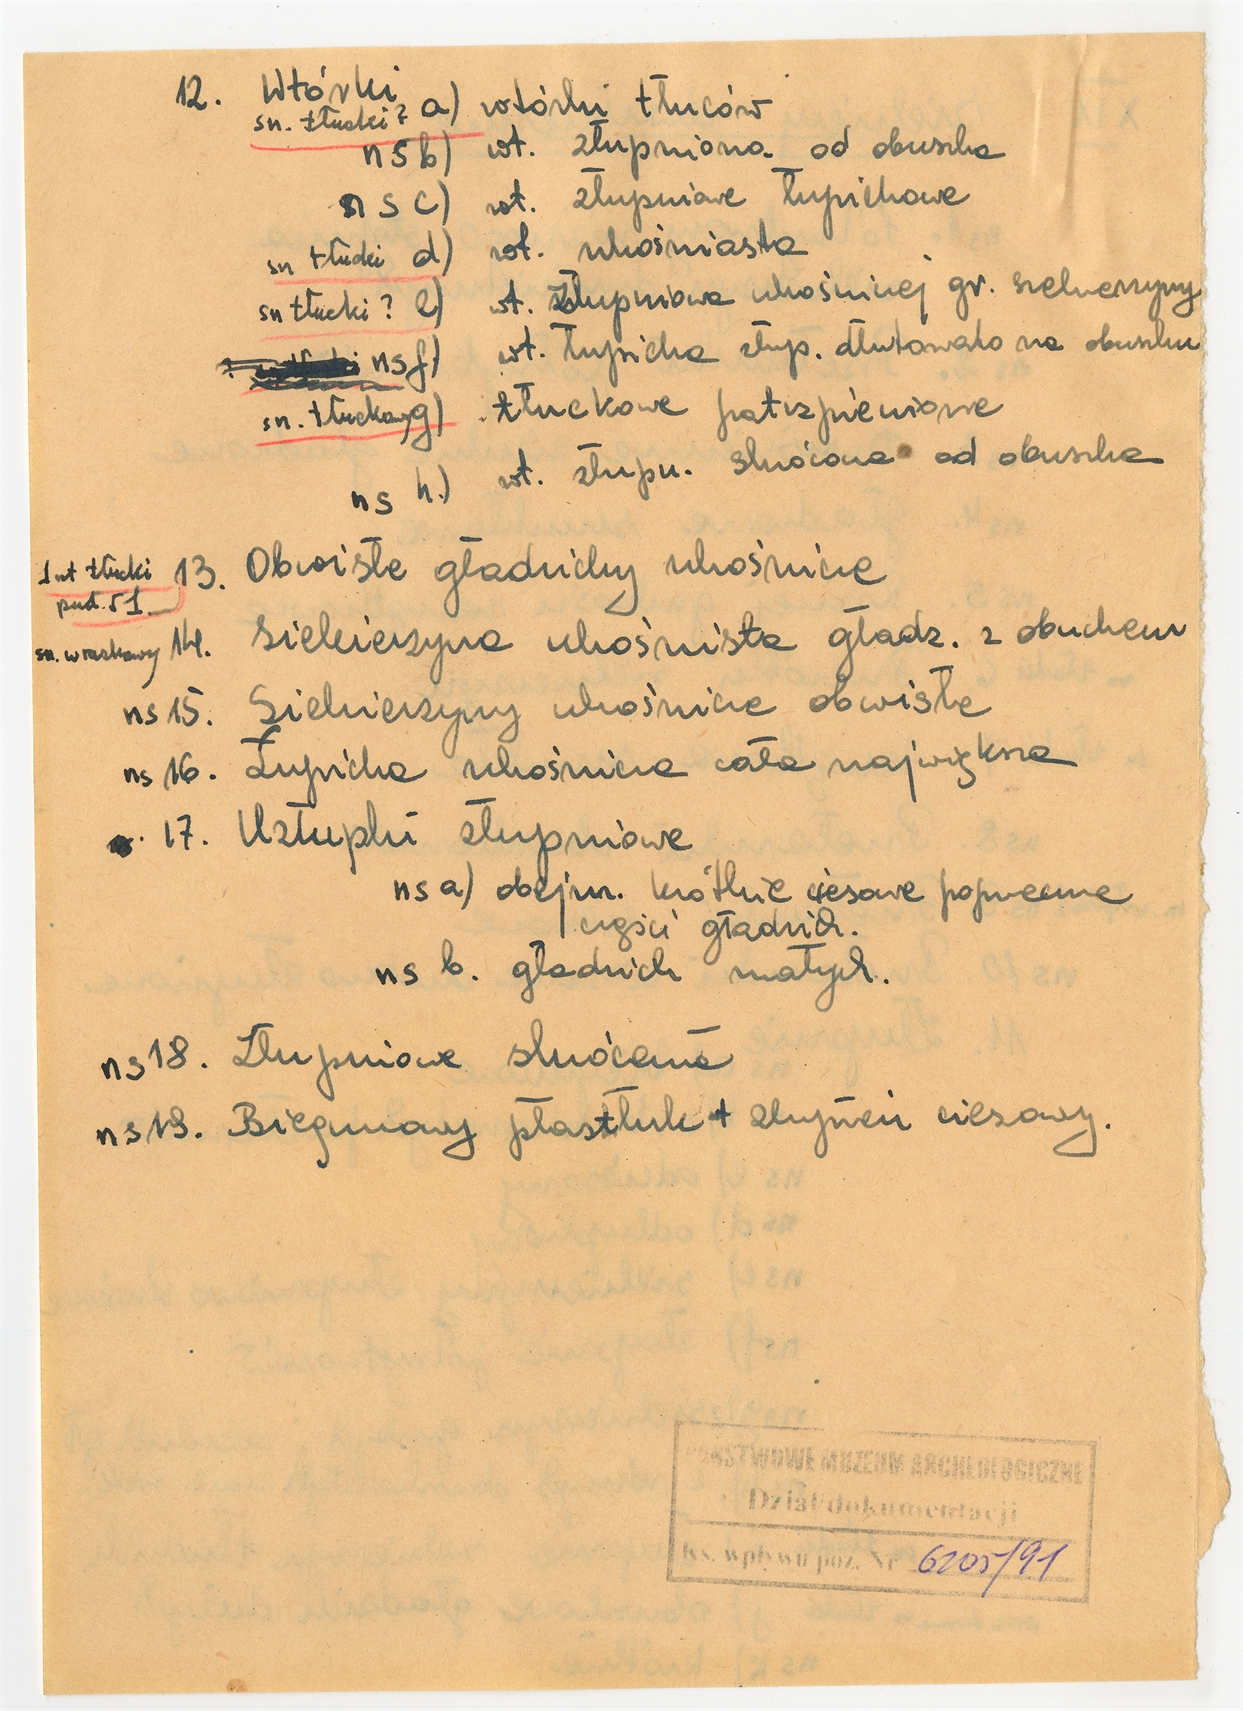 12. Wtórki
sn. tłucki? a) wtórki tłuców
ns b) wt. złupniona od obuszka
ns c) wt. złupniowe łupichowe
sn tłucki d) wt. ukośniasta
sn tłucki? e) wt. złupniowa ukośnicej gr. siekierzyny
ns f) wt. łupicha złup. dłutowato na obuszku
sn. g) tłuckowe
ns h.) wt. złupn. skrócona od obuszka
1 wt tłucki 13. Obwisłe gładzichy ukośnice
pud. 51
14. Siekierzyna ukośnista gładz. z obuchem
ns 15. Siekierzyny ukośnice obwisłe
ns 16. Łupicha ukośnica cała największa
17. Uzłupki złupniowe
ns a) obejm. krótkie ciesowe poprzeczne
części gładzich.
ns b. gładzich małych.
ns 18. Złupniowe skrócenie
ns 19. Biegunowy płastłuk + złupień ciesowy.
PAŃSTWOWE MUZEUM ARCHEOLOGICZNE
Dział dokumentacji
ks. wpływu poz. Nr 6205/91